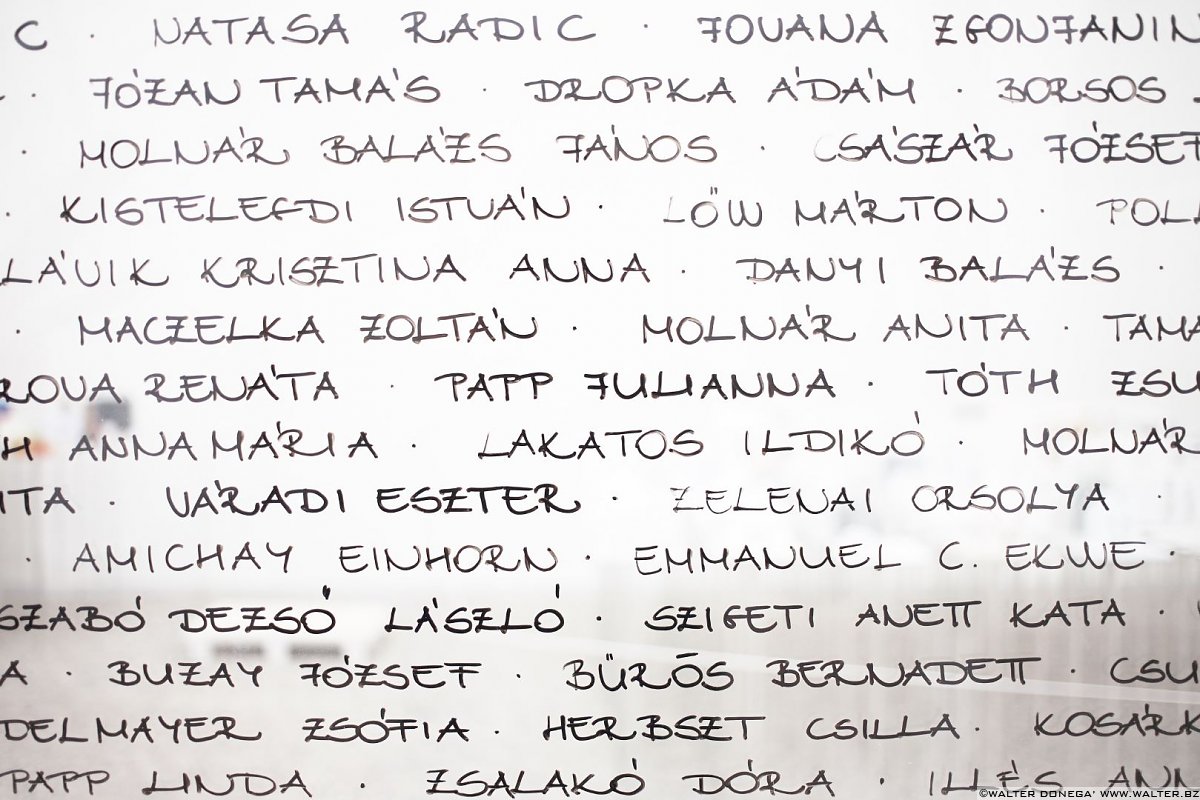 C · NATASA RADIC · JOVANA ZGONJANIN
· JÓZAN TAMÁS · DROPKA ÁDÁM · BORSOS
· MOLNÁR BALÁZS JÁNOS · CSÁSZÁR JÓZSEF
· KISTELEGDI ISTVÁN · LŐW MÁRTON · POLA
LÁVIK KRISZTINA ANNA · DANYI BALÁZS ·
· MACZELKA ZOLTÁN · MOLNÁR ANITA · TAMÁ
ROVA RENÁTA · PAPP JULIANNA · TÓTH ZSU
H ANNAMÁRIA · LAKATOS ILDIKÓ · MOLNÁR
ITA · VÁRADI ESZTER · ZELENAI ORSOLYA ·
· AMICHAY EINHORN · EMMANUEL C. EKWE ·
SZABÓ DEZSŐ LÁSZLÓ · SZIGETI ANETT KATA ·
A · BUZAY JÓZSEF · BŰRŐS BERNADETT · CSU
DELMAYER ZSÓFIA · HERBSZT CSILLA · KOSÁRK
PAPP LINDA · ZSALAKÓ DÓRA · ILLÉS ANN
©WALTER DONEGA' WWW.WALTER.BZ